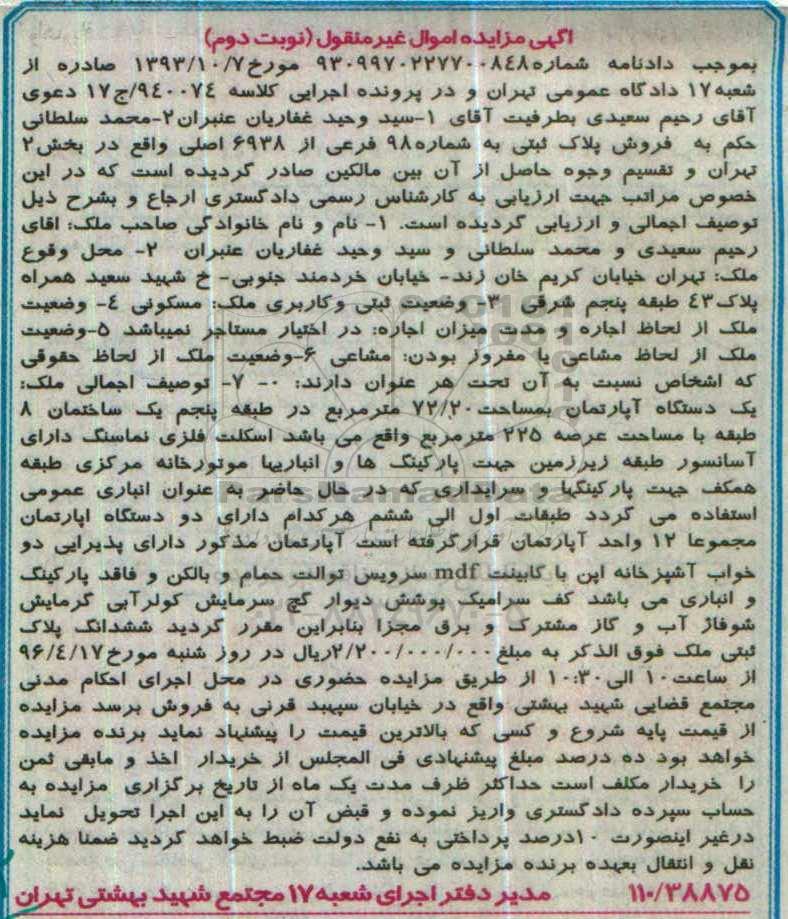 آگهی مزایده اموال غیرمنقول (نوبت دوم)
بموجب دادنامه شماره ۹۳۰۹۹۷۰۲۲۷۷۰۰۸٤۸ مورخ ۱۳۹۳/۱۰/۷ صادره از
شعبه ۱۷ دادگاه عمومی تهران و در پرونده اجرایی کلاسه ۹٤۰۰۷٤/ج۱۷ دعوی
آقای رحیم سعیدی بطرفیت آقای ۱-سید وحید غفاریان عنبران ۲-محمد سلطانی
حکم به فروش پلاک ثبتی به شماره ۹۸ فرعی از ۶۹۳۸ اصلی واقع در بخش ۲
تهران و تقسیم وجوه حاصل از آن بین مالکین صادر گردیده است که در این
خصوص مراتب جهت ارزیابی به کارشناس رسمی دادگستری ارجاع و بشرح ذیل
توصیف اجمالی و ارزیابی گردیده است. ۱- نام و نام خانوادگی صاحب ملک: اقای
رحیم سعیدی و محمد سلطانی و سید وحید غفاریان عنبران ۲- محل وقوع
ملک: تهران خیابان کریم خان زند- خیابان خردمند جنوبی- خ شهید سعید همراه
پلاک ٤۳ طبقه پنجم شرقی ۳- وضعیت ثبتی وکاربری ملک: مسکونی ٤- وضعیت
ملک از لحاظ اجاره و مدت میزان اجاره: در اختیار مستاجر نمیباشد ۵-وضعیت
ملک از لحاظ مشاعی یا مفروز بودن: مشاعی ۶-وضعیت ملک از لحاظ حقوقی
که اشخاص نسبت به آن تحت هر عنوان دارند: ۰- ۷- توصیف اجمالی ملک:
یک دستگاه آپارتمان بمساحت ۷۲/۲۰ مترمربع در طبقه پنجم یک ساختمان ۸
طبقه با مساحت عرصه ۲۲۵ مترمربع واقع می باشد اسکلت فلزی نماسنگ دارای
آسانسور طبقه زیرزمین جهت پارکینگ ها و انباریها موتورخانه مرکزی طبقه
همکف جهت پارکینگها و سرایداری که در حال حاضر به عنوان انباری عمومی
استفاده می گردد طبقات اول الی ششم هرکدام دارای دو دستگاه اپارتمان
مجموعا ۱۲ واحد آپارتمان قرارگرفته است آپارتمان مذکور دارای پذیرایی دو
خواب آشپزخانه اپن با کابینت mdf سرویس توالت حمام و بالکن و فاقد پارکینگ
و انباری می باشد کف سرامیک پوشش دیوار گچ سرمایش کولرآبی گرمایش
شوفاژ آب و گاز مشترک و برق مجزا بنابراین مقرر گردید ششدانگ پلاک
ثبتی ملک فوق الذکر به مبلغ ۲/۲۰۰/۰۰۰/۰۰۰ریال در روز شنبه مورخ ۹۶/٤/۱۷
از ساعت ۱۰ الی ۱۰:۳۰ از طریق مزایده حضوری در محل اجرای احکام مدنی
مجتمع قضایی شهید بهشتی واقع در خیابان سپهبد قرنی به فروش برسد مزایده
از قیمت پایه شروع و کسی که بالاترین قیمت را پیشنهاد نماید برنده مزایده
خواهد بود ده درصد مبلغ پیشنهادی فی المجلس از خریدار اخذ و مابقی ثمن
را خریدار مکلف است حداکثر ظرف مدت یک ماه از تاریخ برگزاری مزایده به
حساب سپرده دادگستری واریز نموده و قبض آن را به این اجرا تحویل نماید
درغیر اینصورت ۱۰درصد پرداختی به نفع دولت ضبط خواهد گردید ضمنا هزینه
نقل و انتقال بعهده برنده مزایده می باشد.
۱۱۰/۳۸۸۷۵ مدیر دفتر اجرای شعبه ۱۷ مجتمع شهید بهشتی تهران